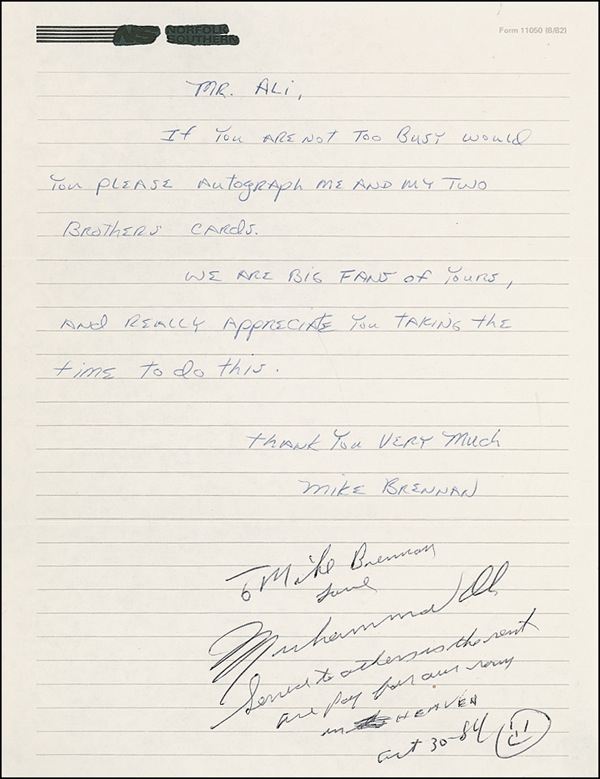 NS NORFOLK
SOUTHERN
Form 11050 (8/82)
MR. ALI,
If You ARE NOT TOO BUSY WOULD
You PLEASE AUtogRAPH ME AND MY TWO
BROTHERS CARDS.
WE ARE BIG FANS of YOURS,
AND REALLY APPRECIATE You TAKING the
time to do this.
thANK You VERY MUCH
MIKE BRENNAN
To Mike Brennan
Love
Muhammad Ali
Service to others is the rent
we pay for our room
in HEAVEN
Oct 30-84